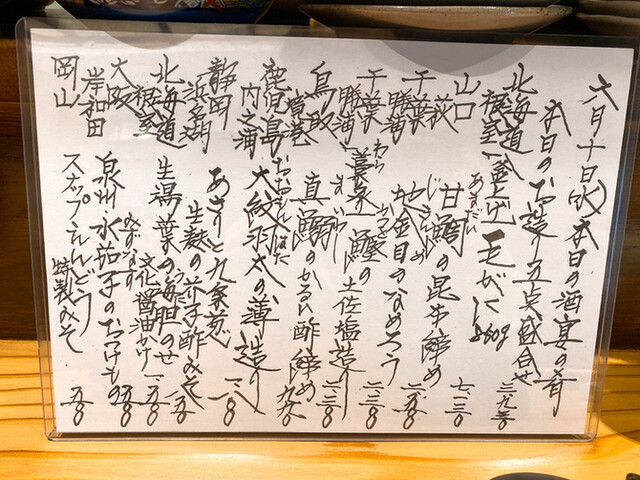 六月十日(水)本日の酒宴の肴
本日のお造り五点盛合せ
北海道 根室 釜上げ 毛がに 560g 三、九五〇
山口 萩 甘鯛の昆布〆 七、二三〇
あまだい
千葉 勝浦 地金目のなめろう
じきんめ
千葉 勝浦 藁灸 鰹の土佐塩造り 一、三八〇
わら
かつお
鳥取 境港 真鰯のかるい酢〆め 九八〇
まいわし
鹿児島 内之浦 大紋羽太の薄造り 一、八〇
おおもんはた
静岡 浜名湖 あさりと九条葱
生麩の芥子酢みそ 八五〇
北海道 根室 生湯葉の海胆のせ
文化醤油かけ 一、二五〇
大阪 岸和田 泉州水茄子のおつけもの 八五〇
みずなす
岡山 スナップえんどう 特製みそ 五八〇